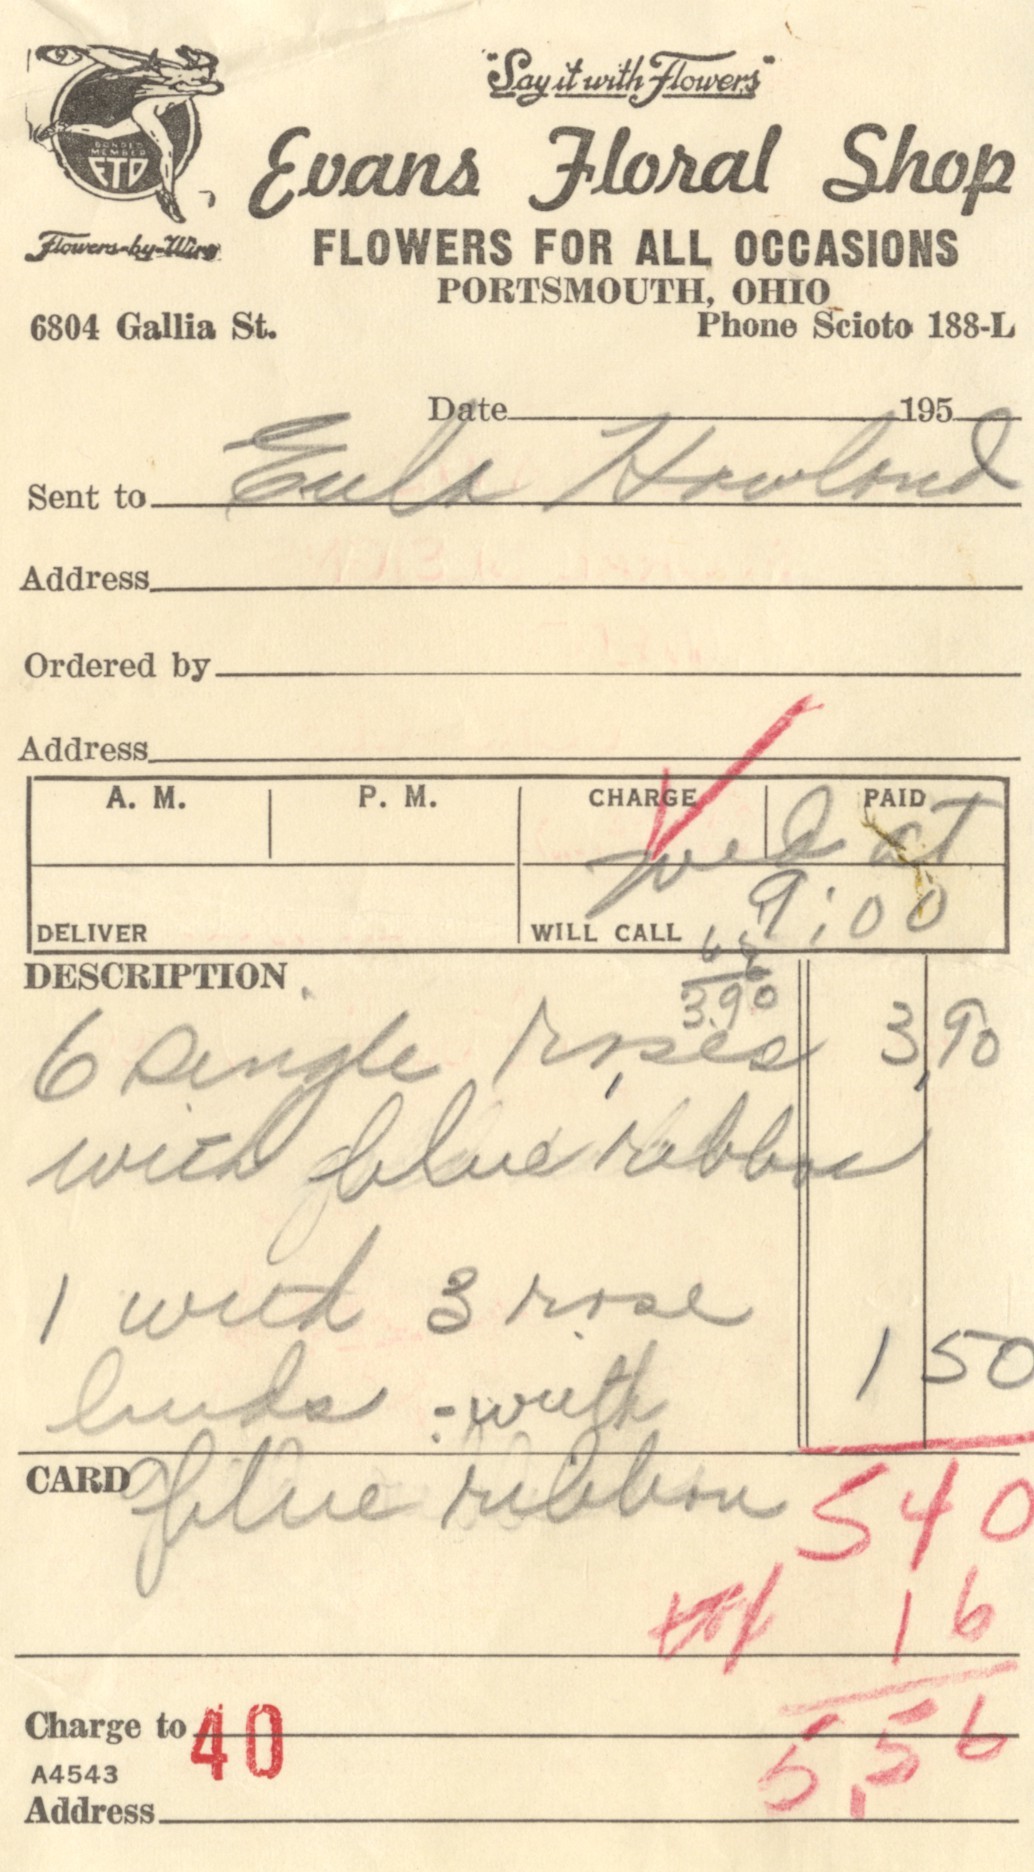 "Say it with Flowers"
BONDED
MEMBER
FTD
Flowers-by-Wire
Evans Floral Shop
FLOWERS FOR ALL OCCASIONS
PORTSMOUTH, OHIO
6804 Gallia St. Phone Scioto 188-L
Date 195
Sent to Eula Howland
Address
Ordered by
Address
A. M. P. M. CHARGE PAID
wed at
9:00
DELIVER WILL CALL
65
6
3.90
DESCRIPTION
6 single roses 3.90
with blue ribbon
1 with 3 rose
buds - with 1 50
CARD blue ribbon
5 40
tax 16
5.56
Charge to 40
A4543
Address